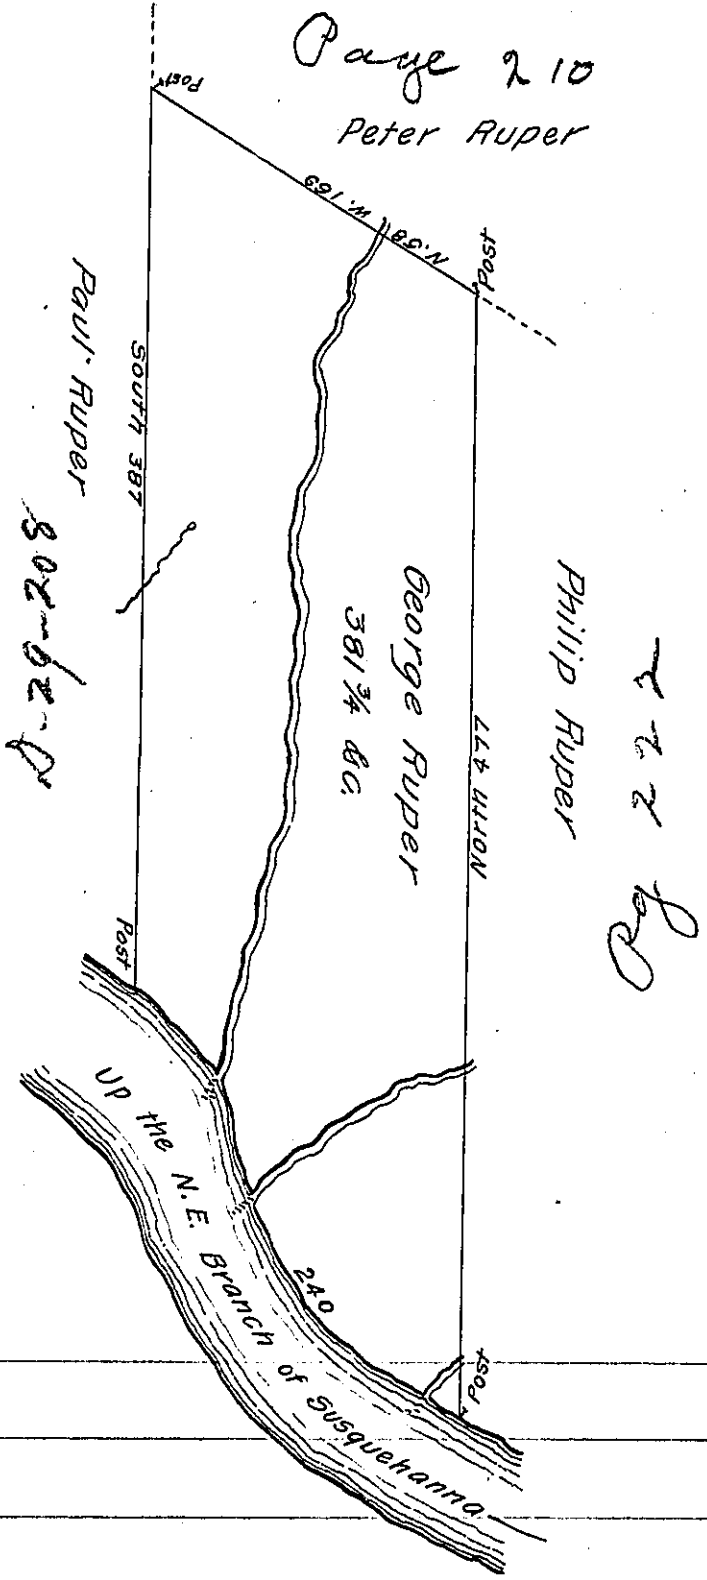 Page 210
Peter Ruper
Post
N. 58 W. 169
Post
Paul Ruper
South 387
D-26-208
George Ruper
381 3/4 ac.
North 477
Philip Ruper
Pg 222
Post
Up the N.E. Branch of Susquehanna
240
Post